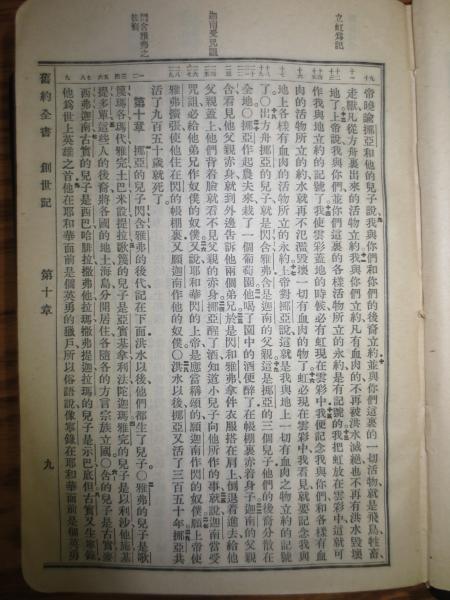 立虹為記
迦南受咒詛
閃含雅弗之後裔
帝曉諭挪亞和他的兒子說我與你們和你們的後裔立約並與你們這裏的一切活物就是飛鳥牲畜
走獸凡從方舟裏出來的活物立約我與你們立約凡有血肉的不再被洪水滅絕也不再有洪水毀壞
地了上帝說我與你們並你們這裏的各樣活物所立的永約是有記號的我把虹放在雲彩中這就可
作我與地立約的記號了我使雲彩蓋地的時候必有虹現在雲彩中我便記念我與你們和各樣有血
肉的活物所立的約水就再不氾濫毀壞一切有血肉的物了虹必現在雲彩中我看見就要記念我與
地上各樣有血肉的活物所立的永約上帝對挪亞說這就是我與地上一切有血肉之物立約的記號
了○出方舟挪亞的兒子就是閃含雅弗含是迦南的父親這是挪亞的三個兒子他們的後裔分散在
全地○挪亞作起農夫來栽了一個葡萄園他喝了園中的酒便醉了在帳棚裏赤着身子迦南的父親
含看見他父親赤身就到外邊告訴他兩個弟兄於是閃和雅弗拿件衣服搭在肩上倒退着進去給他
父親蓋上他們背着臉就看不見父親的赤身挪亞醒了酒知道小兒子向他所作的事就說迦南當受
咒詛必給他弟兄作奴僕的奴僕又說耶和華閃的上帝是應當稱頌的願迦南作閃的奴僕願上帝使
雅弗擴張使他住在閃的帳棚裏又願迦南作他的奴僕○洪水以後挪亞又活了三百五十年挪亞共
活了九百五十歲就死了
第十章 挪亞的兒子閃含雅弗的後代記在下面洪水以後他們都生了兒子○雅弗的兒子是歌
篾瑪各瑪代雅完土巴米設提拉歌篾的兒子是亞實基拿利法陀迦瑪雅完的兒子是以利沙他施基
提多單這些人的後裔將各國的地土海島分開居住各隨各的方言宗族立國○含的兒子是古實麥
西弗迦南古實的兒子是西巴哈腓拉撒弗他拉瑪撒弗提迦拉瑪的兒子是示巴底但古實又生寧錄
他為世上英雄之首他在耶和華面前是個英勇的獵戶所以俗語說像寧錄在耶和華面前是個英勇
舊約全書 創世記 第十章 九